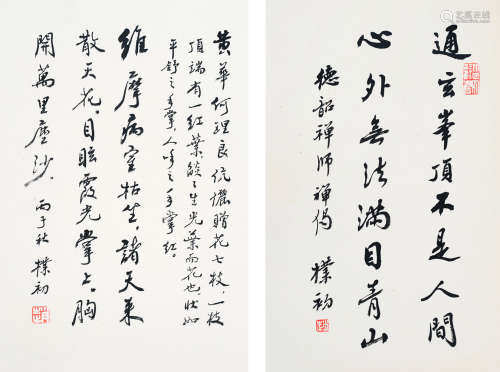 通玄峯頂不是人間
心外無法滿目青山
德韶禪師禪偈 樸初
黄華何理良伉儷贈花七枝，一枝
頂端有一紅葉，燄燄生光，葉而花也，狀如
平舒之手掌，人呼之手掌紅。
維摩病室枯坐，諸天來
散天花。目眩霞光掌上，胸
開萬里塵沙。 丙子秋 樸初